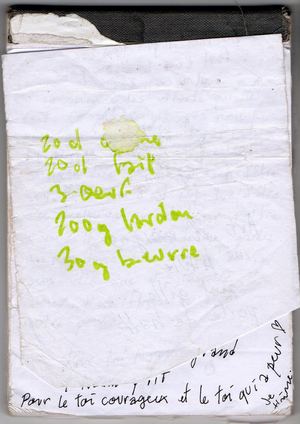 20cl
20cl lait
3 oeuf
200g lardon
30g beurre
grand
Pour le toi courageux et le toi qui a peur
de